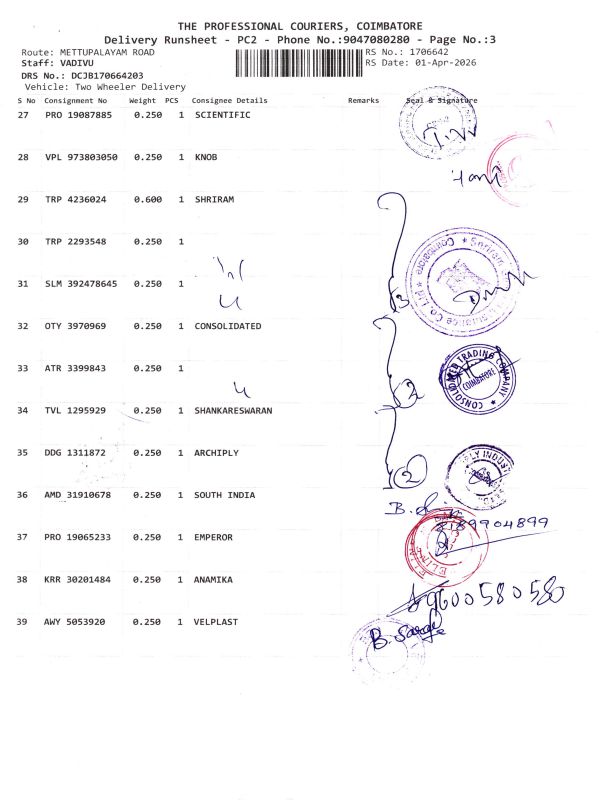 THE PROFESSIONAL COURIERS, COIMBATORE
Delivery Runsheet - PC2 - Phone No.:9047080280 - Page No.:3
Route: METTUPALAYAM ROAD
RS No.: 1706642
Staff: VADIVU
RS Date: 01-Apr-2026
DRS No.: DCJB170664203
Vehicle: Two Wheeler Delivery
S No Consignment No Weight PCS Consignee Details Remarks Seal & Signature
27 PRO 19087885 0.250 1 SCIENTIFIC
28 VPL 973803050 0.250 1 KNOB
29 TRP 4236024 0.600 1 SHRIRAM
30 TRP 2293548 0.250 1
31 SLM 392478645 0.250 1
3
32 OTY 3970969 0.250 1 CONSOLIDATED
CONSOLIDATED TRADING COMPANY
COIMBATORE
33 ATR 3399843 0.250 1
2
34 TVL 1295929 0.250 1 SHANKARESWARAN
35 DDG 1311872 0.250 1 ARCHIPLY
2
36 AMD 31910678 0.250 1 SOUTH INDIA
8189904899
37 PRO 19065233 0.250 1 EMPEROR
38 KRR 30201484 0.250 1 ANAMIKA
9600580580
39 AWY 5053920 0.250 1 VELPLAST